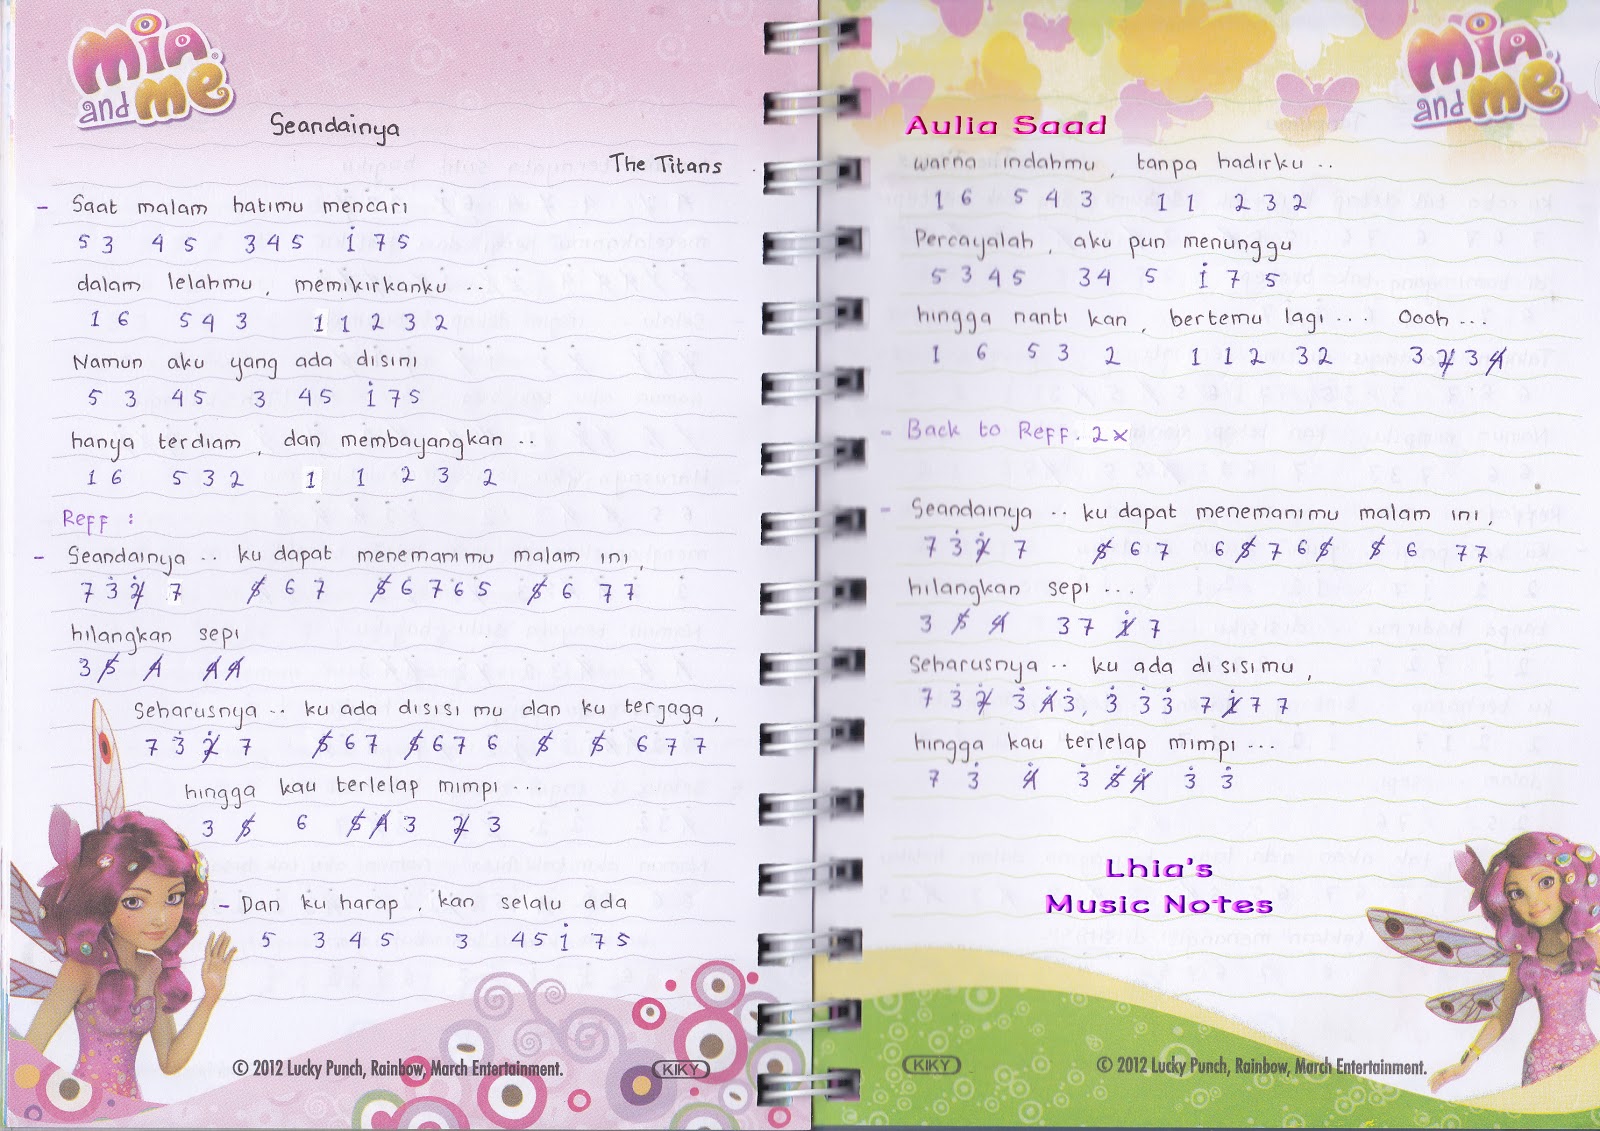 Mia and me
Seandainya
The Titans
- Saat malam hatimu mencari
5 3 4 5 3 4 5 i 7 5
dalam lelahmu, memikirkanku ..
1 6 5 4 3 1 1 2 3 2
Namun aku yang ada disini
5 3 4 5 3 4 5 i 7 5
hanya terdiam, dan membayangkan ..
1 6 5 3 2 1 1 2 3 2
Reff :
- Seandainya .. ku dapat menemanimu malam ini,
7 3̇ 2̸̇ 7 5̸ 6 7 5̸ 6 7 6 5 5̸ 6 7 7
hilangkan sepi
3 5̸ 4̸ 4̸ 4̸
Seharusnya .. ku ada disisi mu dan ku terjaga,
7 3̇ 2̸̇ 7 5̸ 6 7 5̸ 6 7 6 5̸ 5̸ 6 7 7
hingga kau terlelap mimpi ...
3 5̸ 6 5̸ 4̸ 3 2̸ 3
- Dan ku harap, kan selalu ada
5 3 4 5 3 4 5 i 7 5
© 2012 Lucky Punch, Rainbow, March Entertainment.
KIKY
Mia and me
Aulia Saad
warna indahmu, tanpa hadirku ..
1 6 5 4 3 1 1 2 3 2
Percayalah, aku pun menunggu
5 3 4 5 3 4 5 i 7 5
hingga nanti kan, bertemu lagi ... Oooh ...
1 6 5 3 2 1 1 2 3 2 3 2̸ 3 4̸
- Back to Reff. 2x
- Seandainya .. ku dapat menemanimu malam ini,
7 3̇ 2̸̇ 7 5̸ 6 7 6 5̸ 7 6 5̸ 5̸ 6 7 7
hilangkan sepi ...
3 5̸ 4̸ 3 7 1̸̇ 7
Seharusnya .. ku ada disisimu,
7 3̇ 2̸̇ 3̇ 4̸̇ 3̇, 3̇ 3̇ 3̇ 7 1̸̇ 7 7
hingga kau terlelap mimpi ...
7 3̇ 4̸̇ 3̇ 5̸̇ 4̸̇ 3̇ 3̇
Lhia's
Music Notes
KIKY
© 2012 Lucky Punch, Rainbow, March Entertainment.